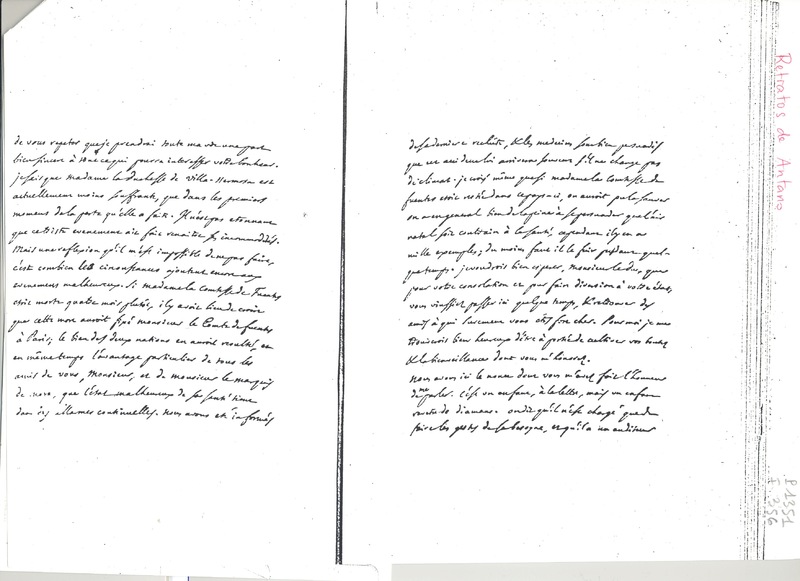 de vous repeter que je prendrai toute ma vie une part
bien sincere à tout ce qui pourra interesser votre bonheur.
je sçais que madame la duchesse de Villa-hermosa est
actuellement moins souffrante, que dans les premiers
momens de la perte qu'elle a faite. Il n'est pas etonnant
que ce triste evenement aie fait renaitre ses incommodités.
Mais une reflexion qu'il m'est impossible de ne pas faire,
c'est combien les circonstances ajoutent encore aux
evenemens malheureux. Si madame la Comtesse de Fuentes
etoit morte quatre mois plutôt, il y avoit lieu de croire
que cette mort auroit fixé monsieur le Comte de fuentes
à Paris; le bien des deux nations en auroit resulté, et
en même temps l'avantage particulier de tous les
amis de vous, Monsieur, et de monsieur le marquis
de mora, que l'état malheureux de sa santé tient
dans des allarmes continuelles. nous avons eté informés
de sa derniere rechûte, & les medecins sont bien persuadés
que cet accident lui arrivera souvent s'il ne change pas
de climat. je crois même que si madame la Comtesse de
fuentes etoit restée dans ce pays ci, on auroit pu la sauver
on a en general bien de la peine à se persuader que l'air
natal soit contraire à la santé, cependant il y en a
mille exemples; du moins faut il le fuir pendant quel-
que temps. je voudrois bien esperer, monsieur le duc, que
pour votre consolation et pour faire diversion à votre état,
vous vinssiez passer ici quelque temps, & retrouver des
amis à qui surement vous etes fort cher. Pour moi je me
trouverois bien heureux d'être à portée de cultiver vos bontés
& la bienveillance dont vous m'honorez.
nous avons ici le nonce dont vous m'avez fait l'honneur
de me parler. C'est un enfant, à la lettre, mais un enfant
couvert de diamans. on dit qu'il n'est chargé que de
faire les gestes de la besogne, et qu'il a un auditeur
Retratos de Antaño
P 1351
I 356